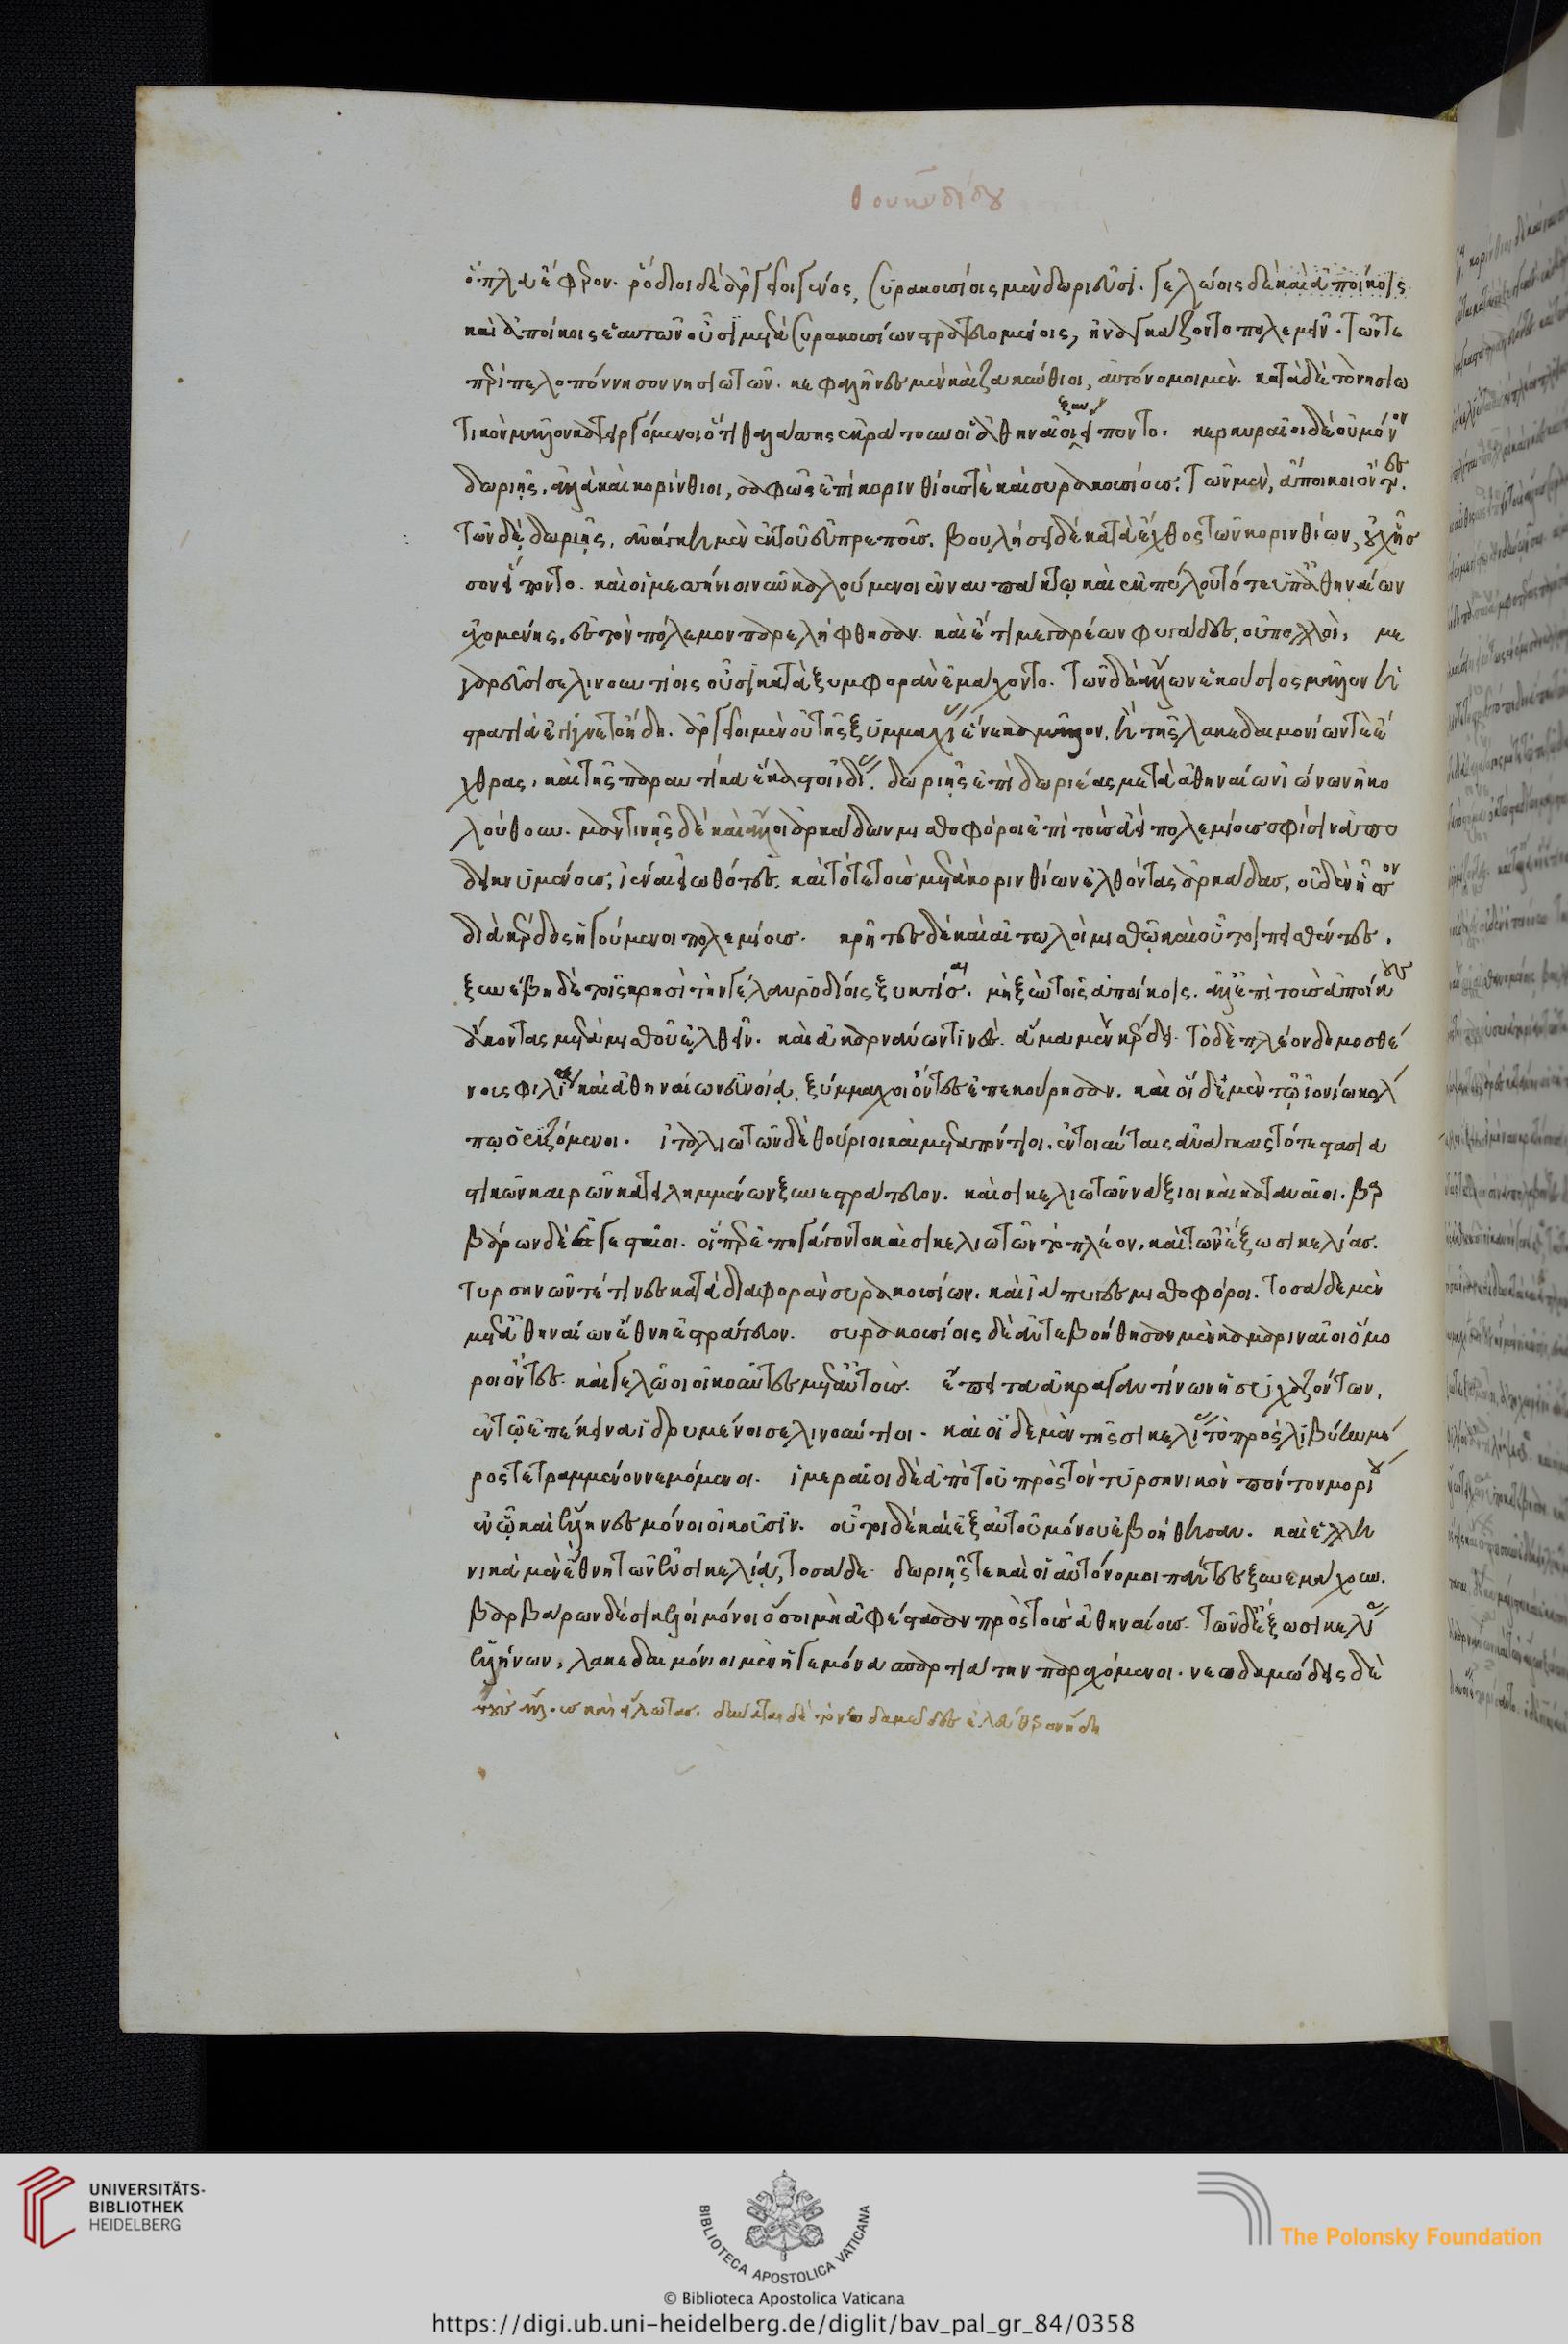 θουκυδίδου
ὅπλα ἔφερον. ῥόδιοι δὲ ἀργεῖοι γένος, συρακουσίοις μὲν δωριεῦσι. γελώοις δὲ καὶ ἀποίκοις
καὶ ἀποίκοις ἑαυτῶν οὖσι μετὰ συρακουσίων στρατευομένοις, ἠναγκάζοντο πολεμεῖν. τῶν τε
περὶ πελοπόννησον νησιωτῶν. κεφαλῆνες μὲν καὶ ζακύνθιοι, αὐτόνομοι μὲν. κατὰ δὲ τὸ νησιω
τικὸν μᾶλλον κατειργόμενοι ὅτι θαλάσσης ἐκράτουν οἱ ἀθηναῖοι ξυνείποντο. κερκυραῖοι δὲ οὐ μόνον
δωριῆς, ἀλλὰ καὶ κορίνθιοι, σαφῶς ἐπὶ κορινθίους τὲ καὶ συρακουσίους. τῶν μὲν, ἄποικοι ὄντες.
τῶν δὲ, δωριῆς. ἀνάγκηι μὲν ἐκ τοῦ εὐπρεποῦς. βουλήσει δὲ κατὰ ἔχθος τῶν κορινθίων, οὐχ ἧσ
σον εἵποντο. καὶ οἱ μεσσήνιοι νῦν καλούμενοι ἐν ναυπάκτῳ καὶ ἐκ πύλου τότε ὑπ' ἀθηναίων
ἐχομένης, ἐς τὸν πόλεμον παρελήφθησαν. καὶ ἔτι μεγαρέων φυγάδες, οὐ πολλοὶ, με
γαρεῦσι σελινουντίοις οὖσι κατὰ ξυμφορὰν ἐμάχοντο. τῶν δὲ ἄλλων ἑκούσιος μᾶλλον ἡ
στρατιὰ ἐγίγνετο ἤδη. ἀργεῖοι μὲν οὐ τῆς ξυμμαχίας ἕνεκα μᾶλλον, ἢ τῆς λακεδαιμονίων τὲ ἔ
χθρας, καὶ τῆς παραυτίκα ἕκαστοι ἰδίας. δωριῆς ἐπὶ δωριέας μετὰ ἀθηναίων ἰώνων ἠκο
λούθουν. μαντινῆς δὲ καὶ ἄλλοι ἀρκάδων μισθοφόροι ἐπὶ τοὺς ἀεὶ πολεμίους σφίσιν ἀπο
δεικνυμένους, ἰέναι εἰωθότες. καὶ τότε τοὺς μετὰ κορινθίων ἐλθόντας ἀρκάδας, οὐδὲν ἧσσον
διὰ κέρδος ἡγούμενοι πολεμίους. κρῆτες δὲ καὶ αἰτωλοὶ μισθῷ καὶ οὗτοι πεισθέντες.
ξυνέβη δὲ τοῖς κρησὶ τὴν γέλαν ῥοδίοις ξυγκτίσαι. μὴ ξὺν τοῖς ἀποίκοις. ἀλλ' ἐπὶ τοὺς ἀποίκους
ἄκοντας μετὰ μισθοῦ ἐλθεῖν. καὶ ἀκαρνάνων τινὲς. ἅμα μὲν κέρδει. τὸ δὲ πλέον δημοσθέ
νους φιλίᾳ καὶ ἀθηναίων εὐνοίᾳ, ξύμμαχοι ὄντες ἐπεκούρησαν. καὶ οἵδε μὲν τῷ ἰονίω κόλ
πῳ ὁριζόμενοι. ἰταλιωτῶν δὲ θούριοι καὶ μεταπόντιοι. ἐν τοιαύταις ἀνάγκαις τότε στασια
στικῶν καιρῶν κατειλημμένων ξυνεστράτευον. καὶ σικελιωτῶν νάξιοι καὶ καταναῖοι. βαρ
βάρων δὲ ἐγεσταῖοι. οἵπερ ἐπηγάγοντο καὶ σικελιωτῶν τὸ πλέον, καὶ τῶν ἔξω σικελίας.
τυρσηνῶν τέ τινες κατὰ διαφορὰν συρακουσίων. καὶ ἰάπυγες μισθοφόροι. τοσάδε μὲν
μετὰ ἀθηναίων ἔθνη ἐστράτευον. συρακουσίοις δὲ ἀντεβοήθησαν μὲν καμαριναῖοι ὅμο
ροι ὄντες. καὶ γελῶοι οἰκοῦντες μετ' αὐτοὺς. ἔπειτα ἀκραγαντίνων ἡσυχαζόντων,
ἐν τῷ ἐπέκεινα ἱδρυμένοι σελινούντιοι. καὶ οἵδε μὲν τῆς σικελίας τὸ πρὸς λιβύην μέ
ρος τετραμμένον νεμόμενοι. ἱμεραῖοι δὲ ἀπὸ τοῦ πρὸς τὸν τυρσηνικὸν πόντον μορίου
ἐν ᾧ καὶ ἕλληνες μόνοι οἰκοῦσιν. οὗτοι δὲ καὶ ἐξ αὐτοῦ μόνου ἐβοήθησαν. καὶ ἑλλη
νικὰ μὲν ἔθνη τῶν ἐν σικελίᾳ, τοσάδε. δωριῆς τε καὶ οἱ αὐτόνομοι πάντες ξυνεμάχουν.
βαρβάρων δὲ σικελοὶ μόνοι ὅσοι μὴ ἀφέστασαν πρὸς τοὺς ἀθηναίους. τῶν δ' ἔξω σικελίας
ἑλλήνων, λακεδαιμόνιοι μὲν ἡγεμόνα σπαρτιάτην παρεχόμενοι. νεοδαμώδεις δὲ
καὶ εἵλωτας. δύναται δὲ τὸ νεοδαμῶδες ἐλεύθερον ἤδη
UNIVERSITÄTS-
BIBLIOTHEK
HEIDELBERG
BIBLIOTECA APOSTOLICA VATICANA
The Polonsky Foundation
© Biblioteca Apostolica Vaticana
https://digi.ub.uni-heidelberg.de/diglit/bav_pal_gr_84/0358